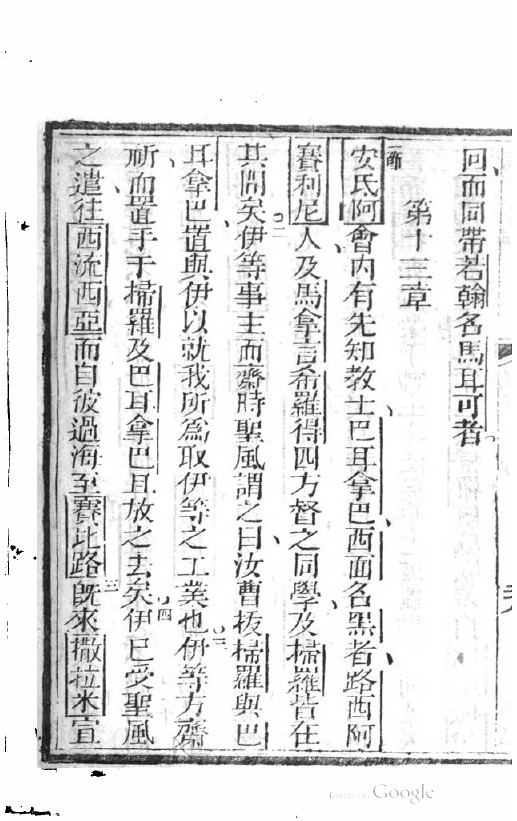 回而同帶若翰名馬耳可者
第十三章
一節安氏阿會內有先知教士巴耳拿巴西面名黑者路西阿
賽利尼人及馬拿言希羅得四方督之同學及掃羅皆在
其間矣二伊等事主而齋時聖風謂之曰汝曹拔掃羅與巴
耳拿巴置與伊以就我所為取伊等之工業也三伊等方齋
祈而置手于掃羅及巴耳拿巴且放之去矣四伊已受聖風
之遣往西流西亞而自彼過海至賽比路三既來撒拉米宣
Digitized by Google